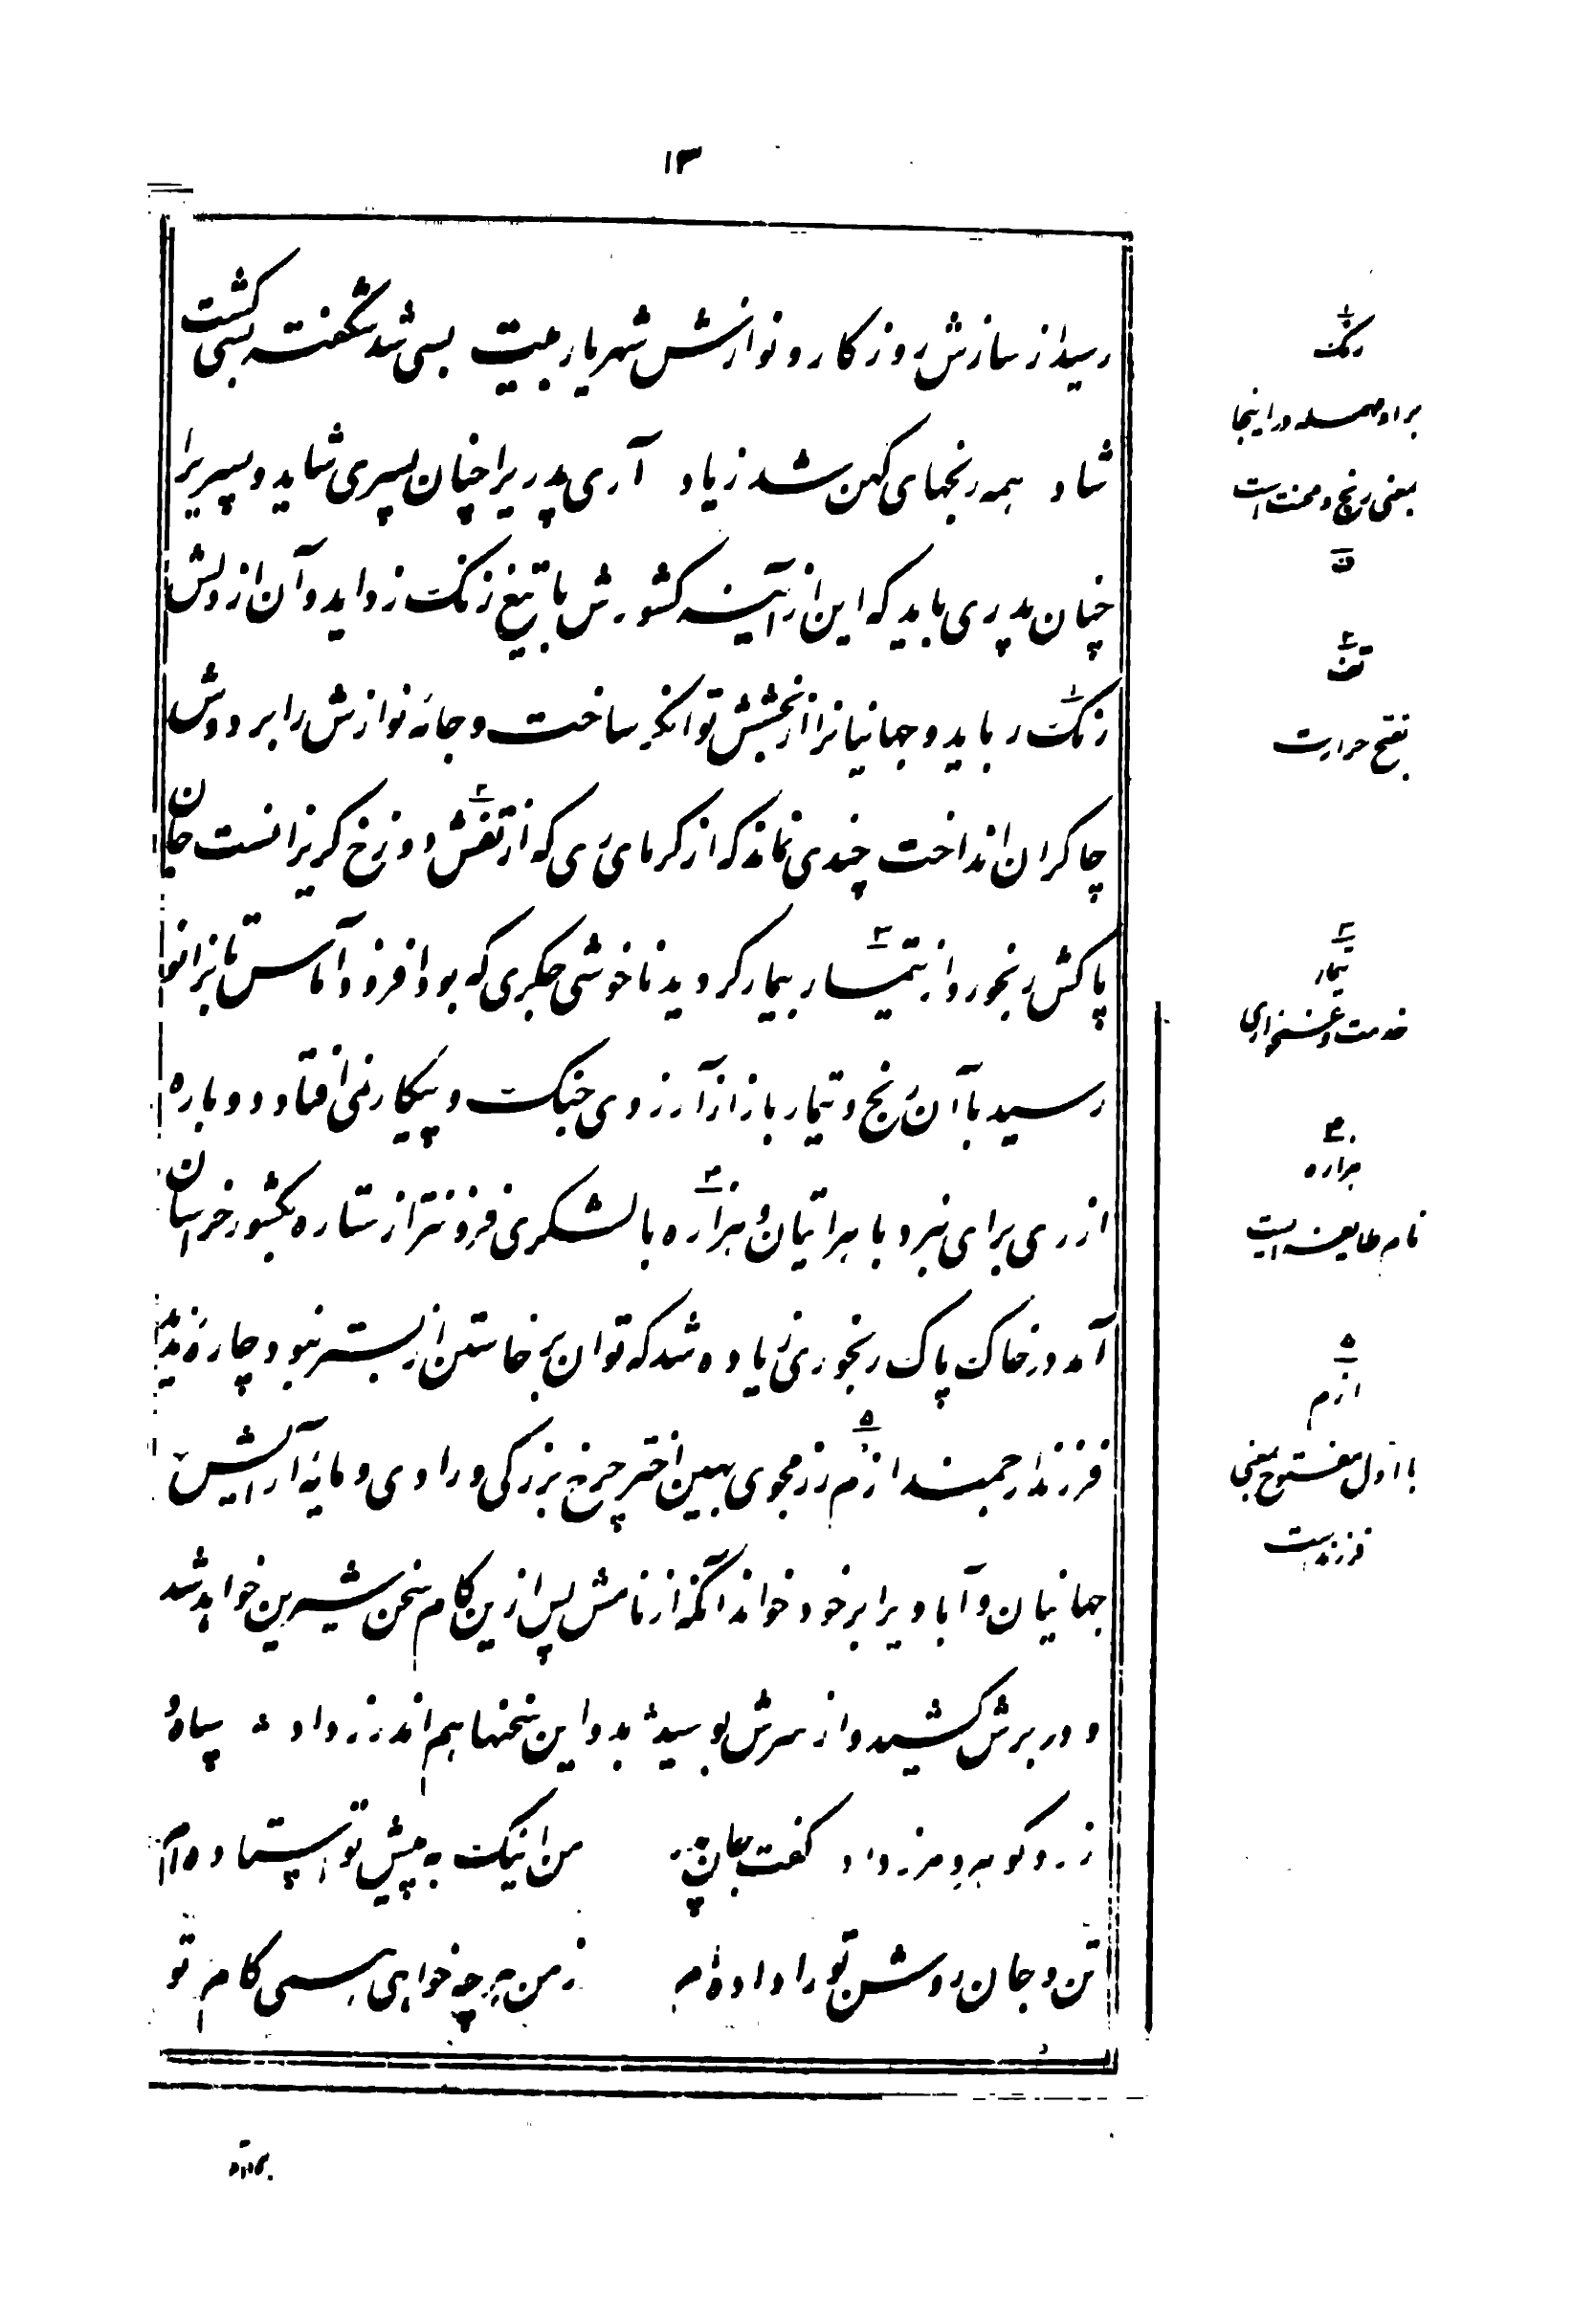 ۱۳
رسید از سازش روزکار و نوازش شهریار بسی شد شکفته بسی کشت
شاد همه رنجهای کهن شد زیاد آری پدریرا چنان پسری شاید و پسریرا
چنان پدری باید که این از آینه کشورش با تیغ زنک زداید و آن از دلش
رنک رباید و جهانیانرا از بخشش توانکر ساخت و جامه نوازش را بر دوش
چاکران انداخت چندی نماند که از کرمای ری که از تفش دوزخ کریزانست جان
پاکش رنجور و از تیمار بیمار کردید ناخوشی جکری که بود افزود آماس تا بزانو
رسید با آن رنج و تیمار باز از آرزوی جنک و پیکار نمی افتاد دوباره
از ری برای نبرد با هراتیان و هزاره با لشکری فزونتر از ستاره بکشور خراسان
آمد در خاک پاک رنجوری زیاده شد که توان برخاستن از بستر نبود چاره
فرزند ارجمند ازم رزمجوی بهین اختر چرخ بزرکی و رادی و مایه آرایش
جهانیان و آبادیرا بر خود خواند آنکه از نامش پس ازین کام سخن شیرین خواهد شد
و در برش کشید و از سرش بوسید بدو این سخنها هم اندرز داد سپاه
زر و کوهر و مرز داد کفت من اینک به پیش تو استاده ام
تن و جان روشن تو را داده ام ز من هر چه خواهی همی کام تو
۱
رنک
براء مهمله در اینجا
بمعنی رنج و محنت است
۲
تف
بفتح حرارت
۳
تیمار
خدمت و غمخواری
۴
هزاره
نام طایفه ایست
۵
ازم
با اول مفتوح بمعنی
فرزند است